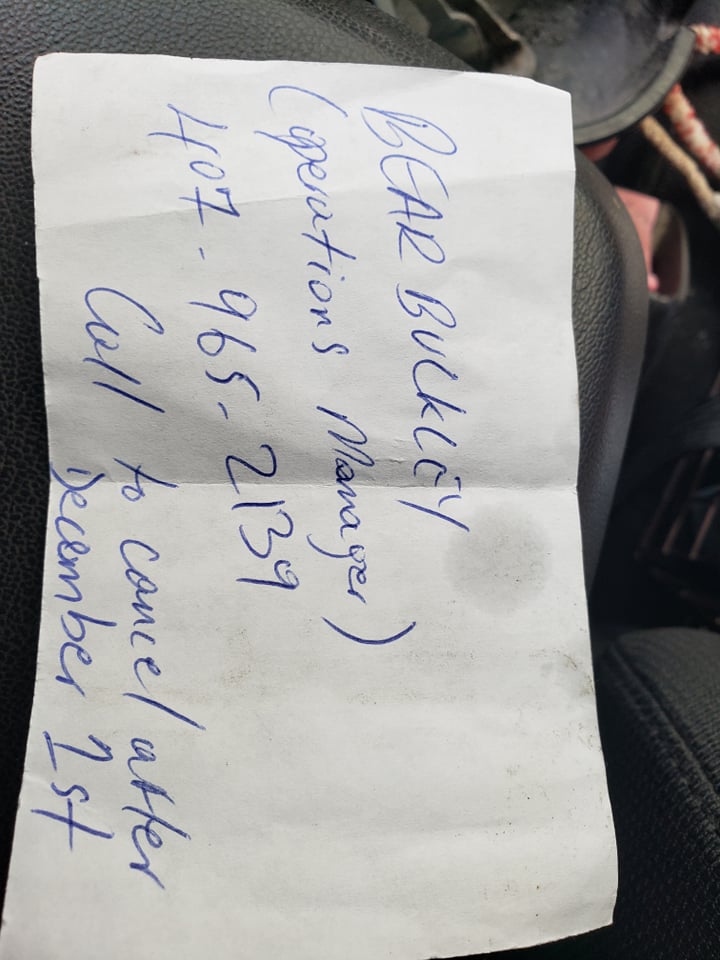 BEAR BUCKLEY
(operations Manager)
407-965-2139
Call to cancel after
December 1st